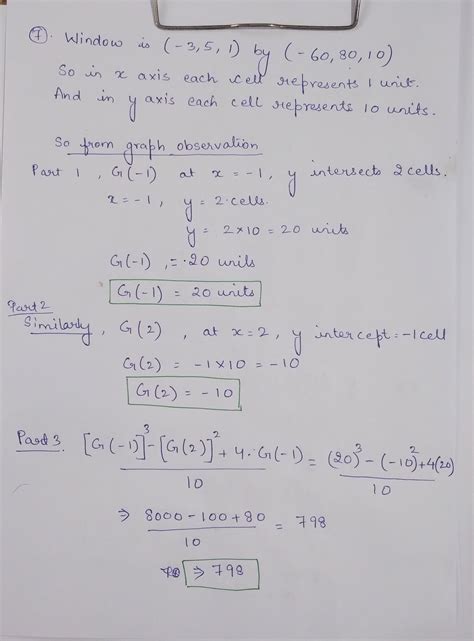 7. Window is (-3,5,1) by (-60,80,10)
So in x axis each cell represents 1 unit.
And in y axis each cell represents 10 units.
So from graph observation
Part 1, G(-1) at x = -1, y intersects 2 cells.
x = -1, y = 2 cells.
y = 2×10 = 20 units
G(-1) = 20 units
G(-1) = 20 units
Part 2
Similarly, G(2), at x = 2, y intercept = -1 cell
G(2) = -1×10 = -10
G(2) = -10
Part 3. [G(-1)]³ - [G(2)]² + 4·G(-1) / 10 = (20)³ - (-10)² + 4(20) / 10
⇒ 8000 - 100 + 80 / 10 = 798
⇒ 798